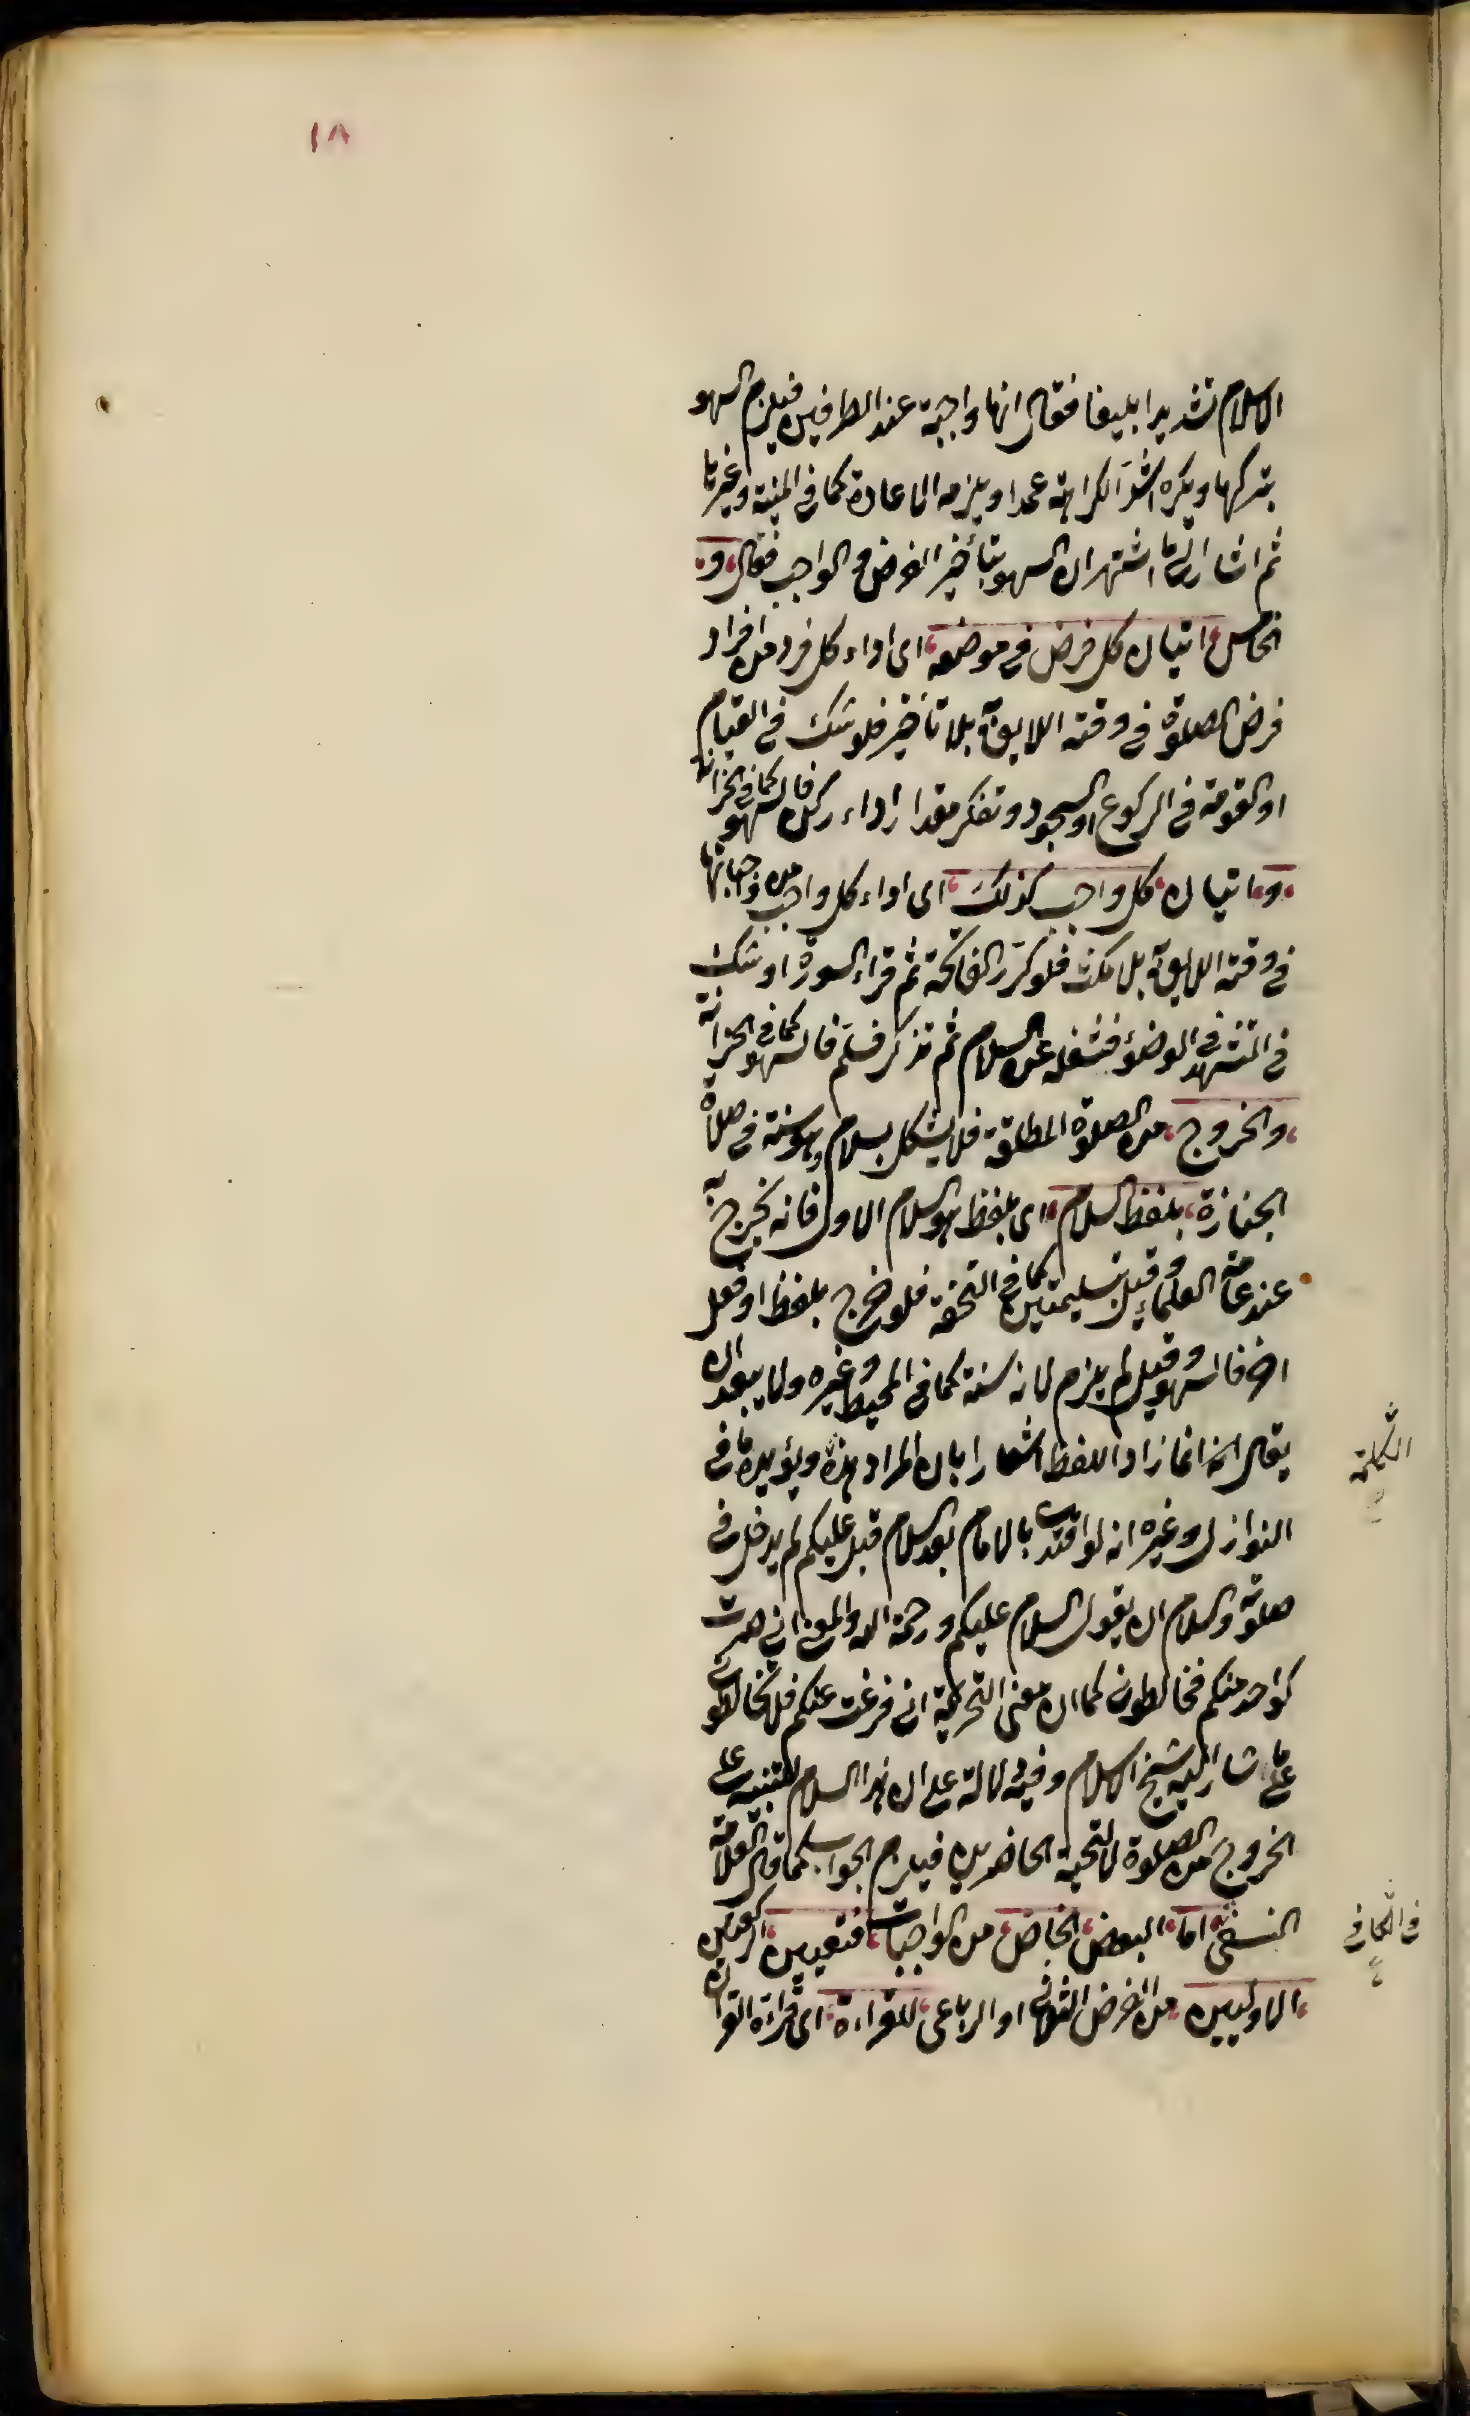 ١٨
الاسلام تشديدا بليغا فقال انها واجبة عند الطرفين فيلزم السهو
بتركها ويكره اشدَ الكراهة عمدا ويلزمه الاعادة كما فى المنية وغيرها
ثم اشار الى ما اشتهر ان السهو بتأخير الفرض والواجب فقال و
الخامس اتيان كل فرض فى موضعه اى اداء كل فرد من افراد
فرض الصلوة فى وقته اللايق به بلا تاخير فلو شك فى القيام
او القومة فى الركوع او السجود وتفكر مقدار اداء ركن فالسهو كما فى الخزانة
و اتيان كل واجب كذلك اى اداء كل واجب من واجباتها
فى وقته اللايق به بلا مكث فلو كرّر الفاتحة ثم قراء السورة او شك
فى التشهد فى الوضوء فشغله عن السلام ثم تذكر فسلّم فالسهو كما فى الخزانة
والخروج من الصلوة المطلقة فلا يشكل بسلام هو سنة فى صلاة
الجنازة بلفظ السلام اى بلفظ هو السلام الاول فانه يخرج به
عند عامة العلماء وقيل بتسليمتين كما فى التحفة فلو خرج بلفظ او فعل
اخر فالسهو وقيل لم يلزم لانه سنة كما فى المحيط وغيره ولا يبعد ان
يقال انه انما زاد اللفظ اشعارا بان المراد هذه ويؤيده ما فى
النوازل وغيره انه لو اقتدى بالامام بعد السلام قبل عليكم لم يدخل فى
صلوته والسلام ان يقول السلام عليكم ورحمة الله والمعنى انى صرت
كواحد منكم فخالطون كما ان معنى التحريمة انى فرغت عنكم فلا تخالطونى
على ما اشار اليه شيخ الاسلام وفيه دلالة على ان هذا السلام للتنبيه على
الخروج من الصلوة لا لتحية الحاضرين فيلزم الجواب كما قال العلامة
النسفى اما البعض الخاص من الواجبات فتعيين الركعتين
الاوليين من الفرض الثلاثى او الرباعى للقراءة اى قراءة القران
التكملة
فى الكافى